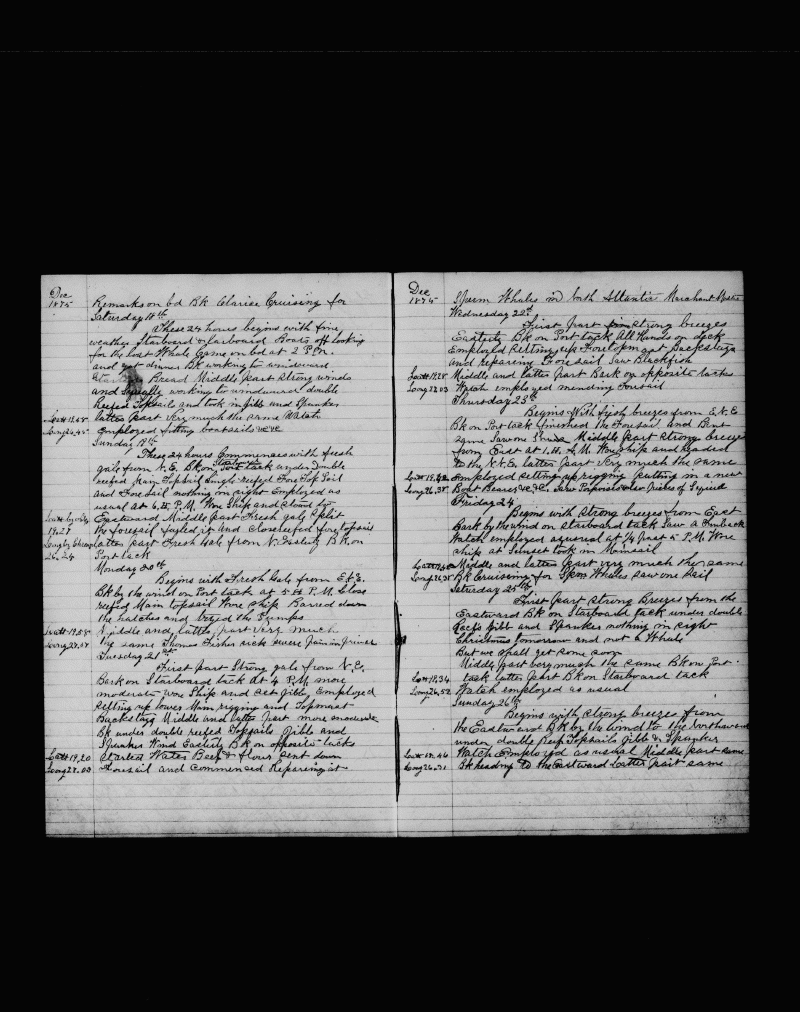 Dec
1875
Remarks on bd Bk Clarice Cruising for
Saturday 18th
These 24 hours begins with fine
weather Starboard & larboard Boats off looking
for the lost Whale Came on bd at 2 P.M.
and got dinner Bk working to windward
Bread Middle part Strong winds
and Squally working to windward double
Reefed Topsails and took in jibb and Spanker
Latt 18,45 latter part Very much the same Watch
Long 26,45 employed fitting boatsails
Sunday 19th
These 24 hours Commences with fresh
gale from N.E. Bk on Port tack under Double
Starboard
reefed Main Topsail Single reefed Fore Top Sail
and Foresail nothing in sight Employed as
usual at 4 P.M. Wore Ship and stood by
Eastward Middle part Fresh gale Split
19,27 the foresail furled it and Closereefed foretopsail
Long by Chron latter part Fresh Gale from N. Easterly Bk on
26,24 Port tack
Monday 20th
Begins with Fresh Gale from E.N.E.
Bk by the wind on Port tack at 5 P.M. Close
reefed Main Topsail Wore Ship Barred down
the hatches and tryed the Pumps
Latt 19,58 Middle and latter part Very much
Long 27,07 the same Thomas Fisher sick
Tuesday 21st
First part Strong gale from N.E.
Bark on Starboard tack At 4 P.M. more
moderate Wore Ship and set Jibb, Employed
Setting up lower Main rigging and Topmast
Backstays Middle and latter part more moderate
Bk under double reefed Topsails Jibb and
Spanker Wind Easterly Bk on opposite tacks
Latt 19,20 Started Water Beef & flour Sent down
Long 27,03 Foresail and Commenced Repairing it
Dec
1875
Sperm Whales in South Atlantic
Wednesday 22d
First part strong breezes
Easterly Bk on Port tack All Hands on deck
Employed Setting up Foretopmast Backstays
and repairing Foresail Saw Blackfish
Middle and latter part Bark on opposite tacks
Long 27,03 Watch employed mending Foresail
Thursday 23th
Begins With fresh breezes from E.N.E
Bk on Port tack finished the Foresail and Bent
same Saw one Middle part Strong breezes
from East at 1 A.M. Wore Ship and headed
to the N.N.E. latter part Very much the same
employed Setting up rigging putting in a new
Long 26,38 Boat Bearer &c. &c. Saw Porpoises Pieces of Squid
Friday 24
Begins with strong breezes from East
Bark by the wind on starboard tack Saw a finback
Watch employed as usual at 1/4 past 5 P.M. Wore
ship at Sunset took in Mainsail
Middle and latter part very much the same
Bk Cruising for Sperm Whales saw one sail
Saturday 25th
First part strong Breezes from the
Eastward Bk on Starboard tack under double
Reefs Jibb and Spanker nothing in sight
Christmas tomorrow and not a Whale
But we shall get some soon
Middle part very much the same Bk on Port
Latt 18,34 tack latter part Bk on Starboard tack
Long 26,52 Watch employed as usual
Sunday 26th
Begins with strong breezes from
the Eastward Bk by the wind to the Northward
under double Reef Topsails Jibb & Spanker
Watch Employed as usual Middle part same
Long 26,31 Bk heading to the Eastward Latter part same